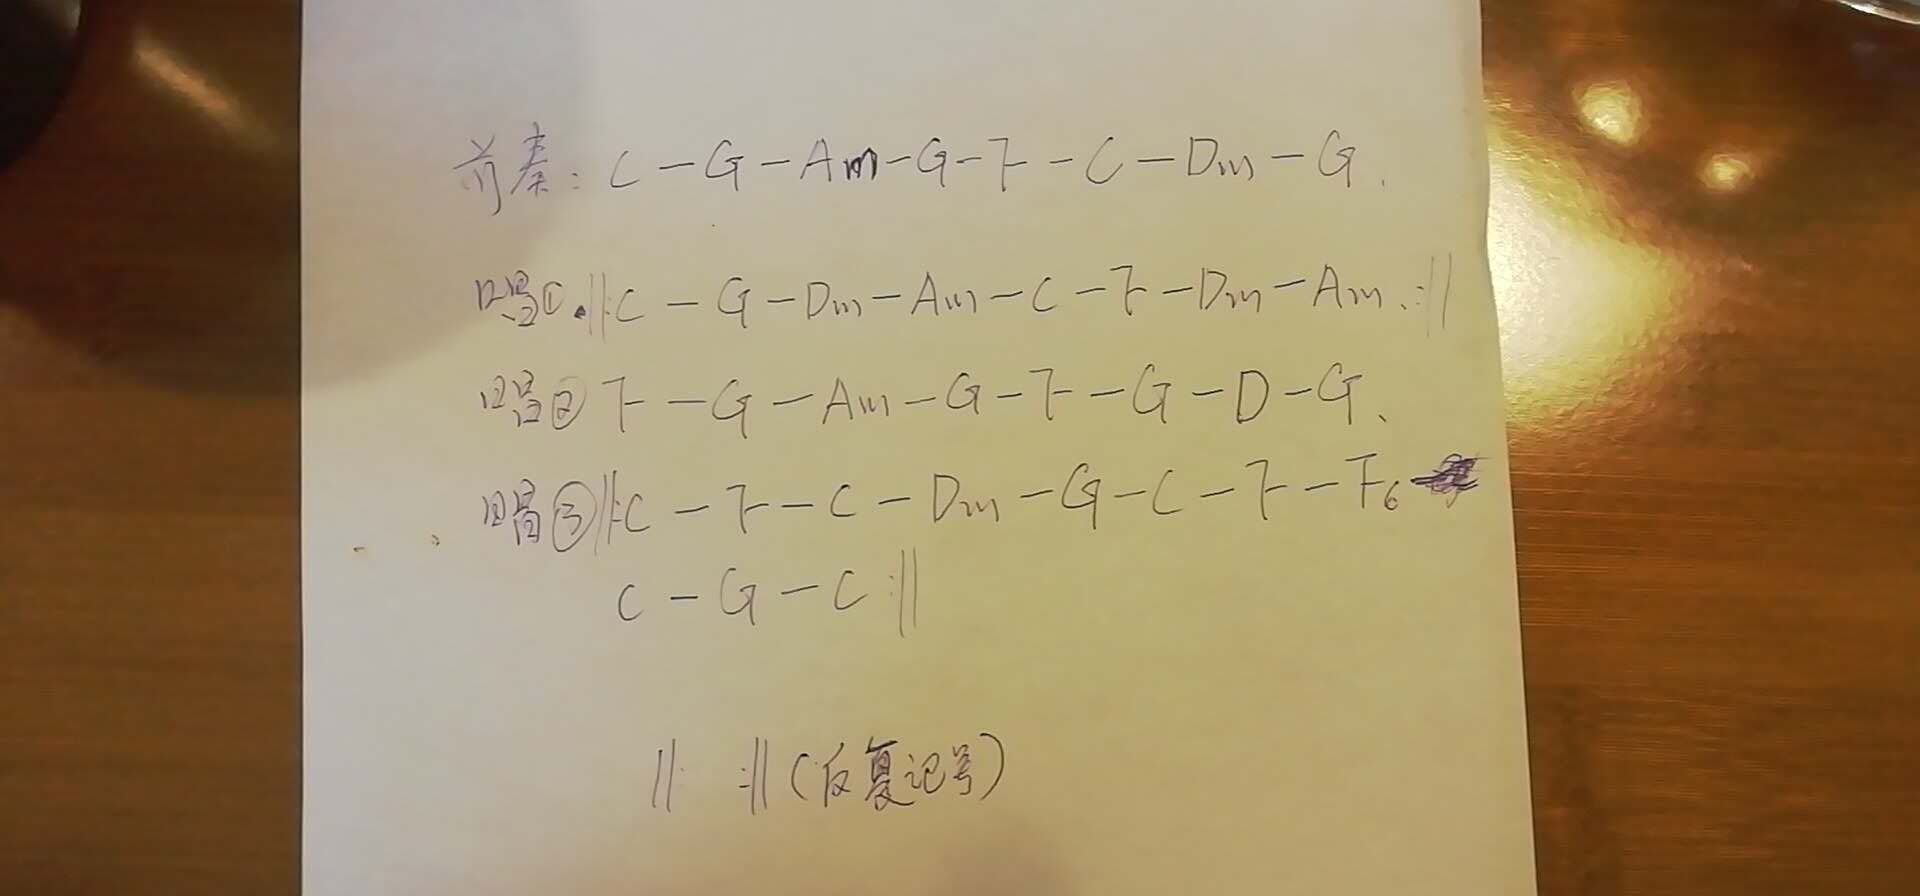 前奏: C-G-Am-G-F-C-Dm-G.
唱①.‖:C-G-Dm-Am-C-F-Dm-Am.:‖
唱②F-G-Am-G-F-G-D-G、
唱③‖:C-F-C-Dm-G-C-F-F6-
C-G-C:‖
‖: :‖(反复记号)